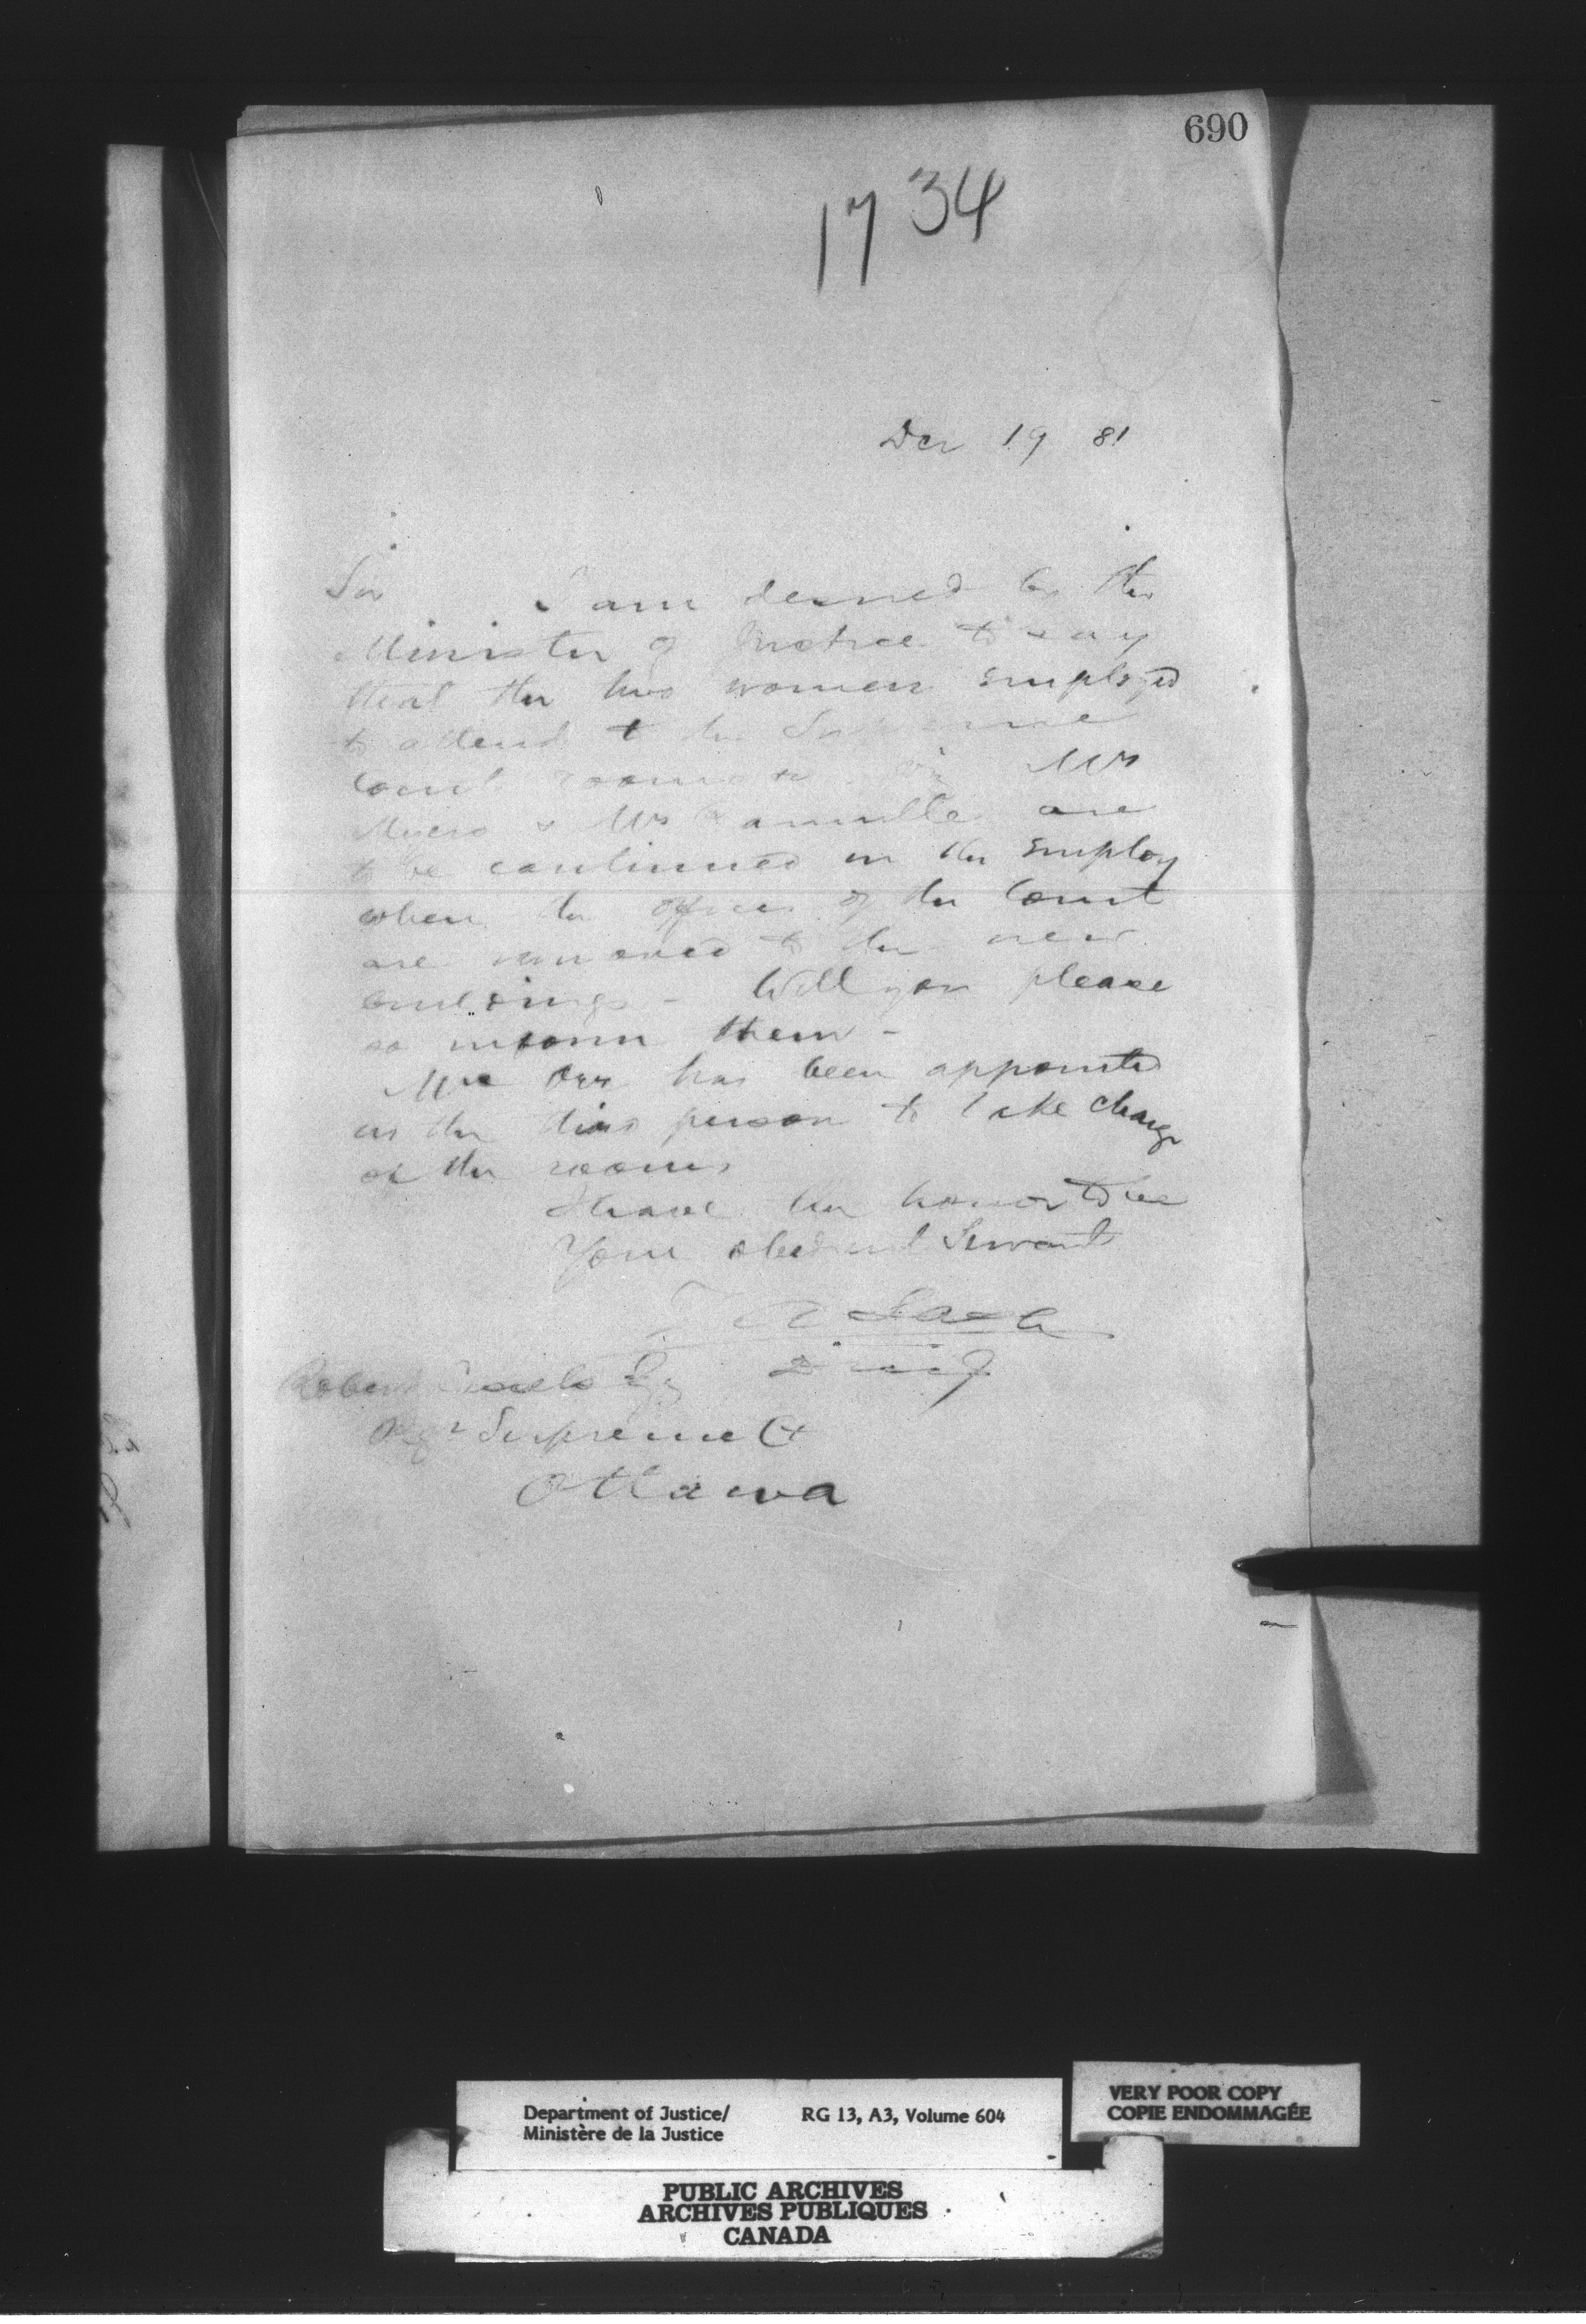 690
1734
Dec 19 81
Sir
I am desired by the
Minister of Justice to say
that the two women employed
to attend to the Supreme
Court rooms viz Mrs
Myers & Mrs are
to be continued in the employ
when the offices of the Court
are removed to the new
buildings - Will you please
so inform them -
Mrs Orr has been appointed
as the third person to take charge
of the rooms
I have the honor to be
Your obedient Servant
Z A Lash
D M J
Robert Cassels Esq
Regr Supreme Ct
Ottawa
Department of Justice/ RG 13, A3, Volume 604
Ministère de la Justice
VERY POOR COPY
COPIE ENDOMMAGÉE
PUBLIC ARCHIVES
ARCHIVES PUBLIQUES
CANADA